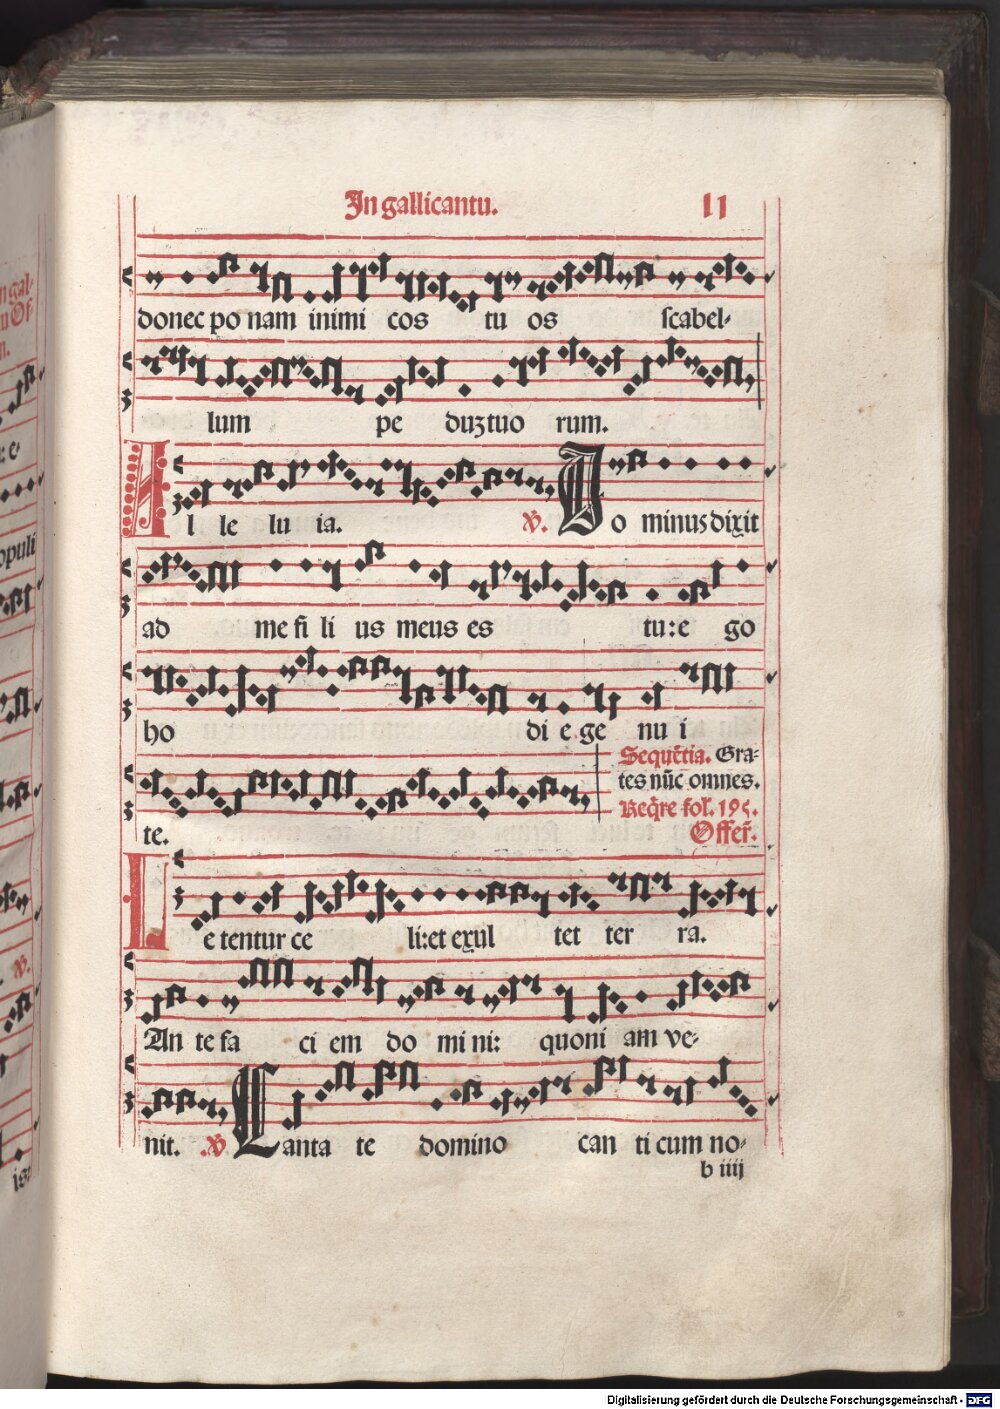 In gallicantu. 11
donec po nam inimi cos tu os scabel-
lum pe duꝫ tuo rum.
Al le lu ia. ℣. Do minus dixit
ad me fi li us meus es tu: e go
ho di e ge nu i
Sequẽtia. Gra-
tes nũc omnes.
te. Reqͥre fol. 195.
Offer̃.
Le tentur ce li: et exul tet ter ra.
An te fa ci em do mi ni: quoni am ve-
nit. ℣ Canta te domino can ti cum no-
b iiij
n gal-
u Of-
n.
: e-
opuli
℣.
Digitalisierung gefördert durch die Deutsche Forschungsgemeinschaft - DFG